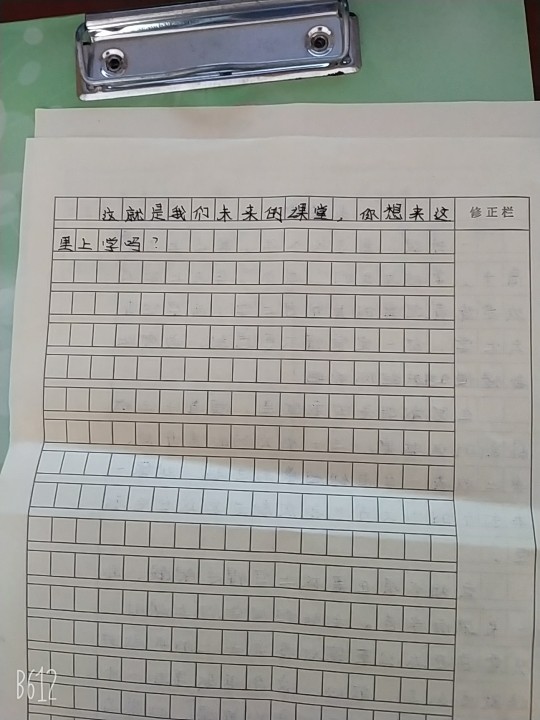 这就是我们未来的课堂，你想来这
里上学吗？
修正栏
B612